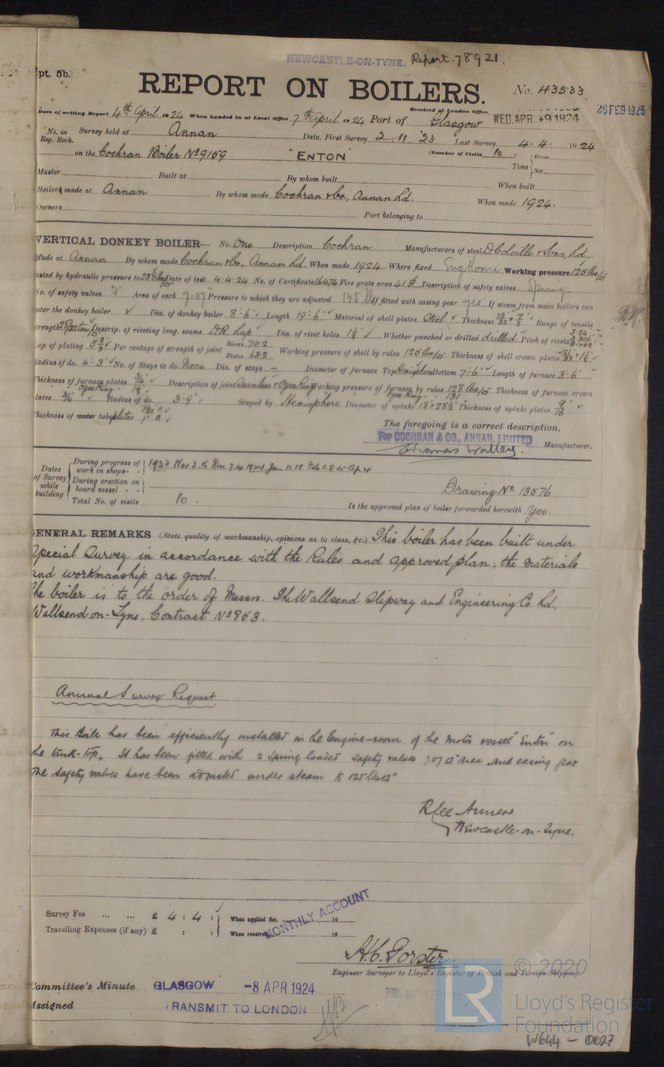 NEWCASTLE-ON-TYNE. Report. 78921.
Rpt. 5b.
REPORT ON BOILERS.
No. 43533
26 FEB 1925
Date of writing Report 4th April 1924 When handed in at Local Office 7th April 1924 Port of Glasgow
Received at London Office WED. APR. 9 1924
No. in Reg. Book. Survey held at Annan Date, First Survey 2.11.23 Last Survey 4.4.1924
on the Cochran Boiler No 9159 "ENTON" (Number of Visits 10) Tons
Master Built at By whom built When built
Boilers made at Annan By whom made Cochran & Co, Annan Ld. When made 1924.
Owners Port belonging to
VERTICAL DONKEY BOILER— No. One Description Cochran Manufacturers of steel D Colville & Sons, Ld.
Made at Annan By whom made Cochran & Co, Annan Ld. When made 1924 Where fixed Engine room Working pressure 125 lbs
tested by hydraulic pressure to Date of test 4-4-24 No. of Certificate 16474 Fire grate area 41 Description of safety valves Spring
No. of safety valves 2 Area of each 7.07 Pressure to which they are adjusted If fitted with casing gear yes If steam from main boilers can
enter the donkey boiler Dia. of donkey boiler 8'-6" Length 19'-6" Material of shell plates Steel Thickness Range of tensile
strength Descrip. of riveting long. seams D R Lap Dia. of rivet holes Whether punched or drilled drilled Pitch of rivets
Lap of plating Per centage of strength of joint Rivets 70.2 Plates Working pressure of shell by rules Thickness of shell crown plates
Radius of do. 4'-3" No. of Stays to do. None Dia. of stays — Diameter of furnace Top Bottom 7'-6" Length of furnace 3'-6"
Thickness of furnace plates Description of joint Working pressure of furnace by rules 128 lbs Thickness of furnace crown
plates Radius of do. 3'-9" Stayed by Hemisphere Diameter of uptake Thickness of uptake plates
Thickness of water tubes
The foregoing is a correct description,
For COCHRAN & CO., ANNAN, LIMITED
Manufacturer.
Dates of Survey while building
During progress of work in shops - -
During erection on board vessel - - -
Total No. of visits 10.
Drawing No. 13576
Is the approved plan of boiler forwarded herewith Yes.
GENERAL REMARKS (State quality of workmanship, opinions as to class, &c.) This boiler has been built under
Special Survey in accordance with the Rules and approved plan, the materials
and workmanship are good.
The boiler is to the order of Messrs. The Wallsend Slipway and Engineering Co. Ld,
Wallsend-on-Tyne. Contract No 853.
Annual Survey Request
This Boiler has been efficiently installed in the Engine-room of the Motor vessel "Enton" on
the tank-top. It has been fitted with 2 spring loaded safety valves 7.07 area and easing gear
The safety valves have been adjusted under steam to 125 lbs
Newcastle-on-Tyne.
Survey Fee ... ... £ 4 : 4 : When applied for, 19
MONTHLY ACCOUNT
Travelling Expenses (if any) £ : : When received, 19
H.C. Forster.
Engineer Surveyor to Lloyd's Register of British and Foreign Shipping.
Committee's Minute GLASGOW -8 APR 1924
Assigned TRANSMIT TO LONDON
LR
© 2020
Lloyd's Register
Foundation
W644 - 0027